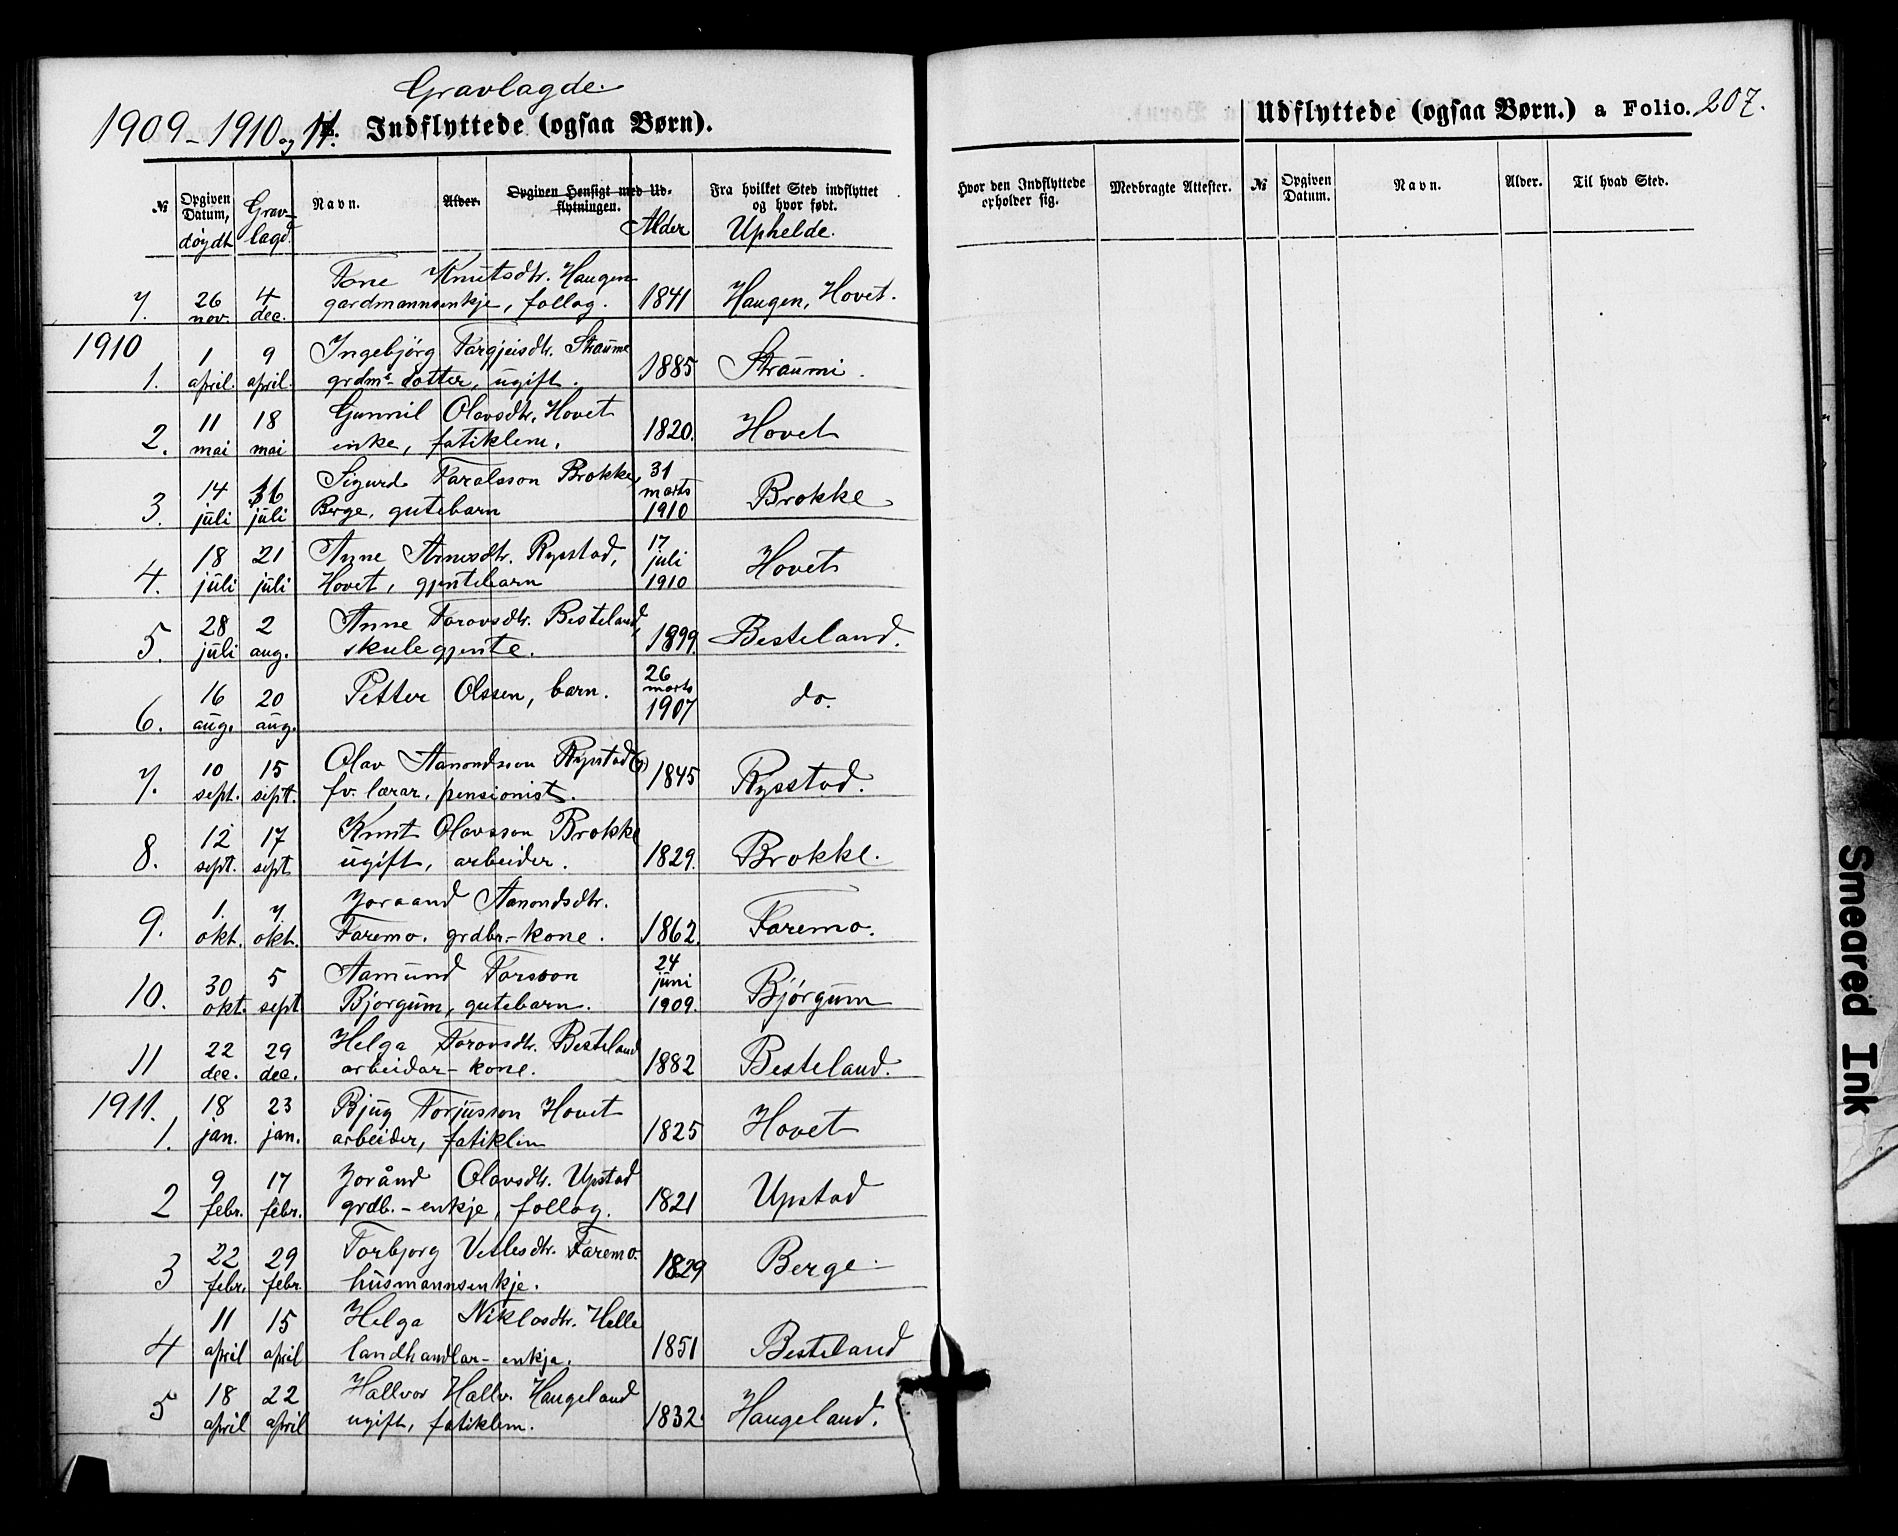 Gravlagde.
1909 - 1910 og 11. Indflyttede (ogsaa Børn).
№ Opgiven Datum, døydt Gravlagd. Navn. Alder. Opgiven Hensigt med Udflytningen. Alder Fra hvilket Sted indflyttet og hvor født. Uphelde.
Tone Knutsdtr. Haugen
7. 26 nov. 4 dec. gardmannsenkje, follog. 1841 Haugen, Hovet.
1910
1. 1 april. 9 april. Ingebjörg Targjeisdtr. Straume
grdms- dotter, ugift. 1885 Straumi.
2. 11 mai 18 mai Gunnil Olavsdtr. Hovet
enke, fatiklem. 1820. Hovet
3. 14 juli 16 juli Sigurd Taralsson Brokke,
Berge, gutebarn 31 marts 1910 Brokke
4. 18 juli 21 juli Anne Arnesdtr. Rysstad,
Hovet, gjentebarn 17 juli 1910 Hovet
5. 28 juli 2 aug. Anne Torovsdtr. Besteland,
skulegjente. 1899. Besteland.
6. 16 aug. 20 aug. Petter Olssen, barn. 26 marts 1907 do.
7. 10 sept. 15 sept. Olav Aanondsson Rysstad
fv. lærar, pensionist. 1845 Rysstad.
8. 12 sept. 17 sept Knut Olavsson Brokke
ugift, arbeider. 1829. Brokke.
9. 1. okt. 7. okt. Joraand Aanondsdtr.
Faremo. grdbr.- kone. 1862. Faremo.
10. 30 okt. 5 sept Aamund Torsson
Bjorgum, gutebarn. 24 juni 1909. Bjórgum
11 22 dec. 29 dec. Helga Torovsdtr. Besteland
arbeidar- kone. 1882 Besteland.
1911.
1. 18 jan. 23 jan. Bjug Torjusson Hovet
arbeider, fatiklim 1825 Hovet
2 9 febr. 17 febr. Joránd Olavsdtr. Upstad
grdb. - enkje, follog. 1821 Upstad
3 22 febr. 29 febr. Torbjorg Vetlesdtr. Faremo.
husmannsenkje. 1829 Berge
4 11 april 15 april Helga Niklosdtr. Helle
landhandlar- enkja. 1851 Besteland
5 18 april 22 april Hallvor Hallv. Haugeland
ugift, fatiklem. 1832. Haugeland.
Udflyttede (ogsaa Børn.) a Folio. 207.
Hvor den Indflyttede opholder sig. Medbragte Attester. № Opgiven Datum. Navn. Alder. Til hvad Sted.
Smeared Ink